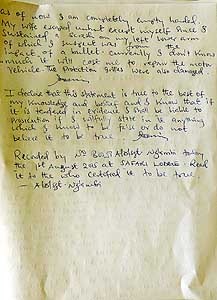 as of now I am completely empty handed.
My wife escaped unhurt except myself since I
sustained a scratch on my left lower arm
of which I suspect was from the
impact of a bullet. Currently I don't know
much it will cost me to repair the motor
vehicle. The protection grilles were also damaged.
I declare that this statement is true to the best of
my knowledge and belief and I know that if
it is tendered in evidence I shall be liable to
prosecution if I wilfully state in it anything
which I know to be false or do not
believe it to be true.
Recorded by No today
the 1st August 2015 at SAFARI. Read
it to the who certified it to be true.